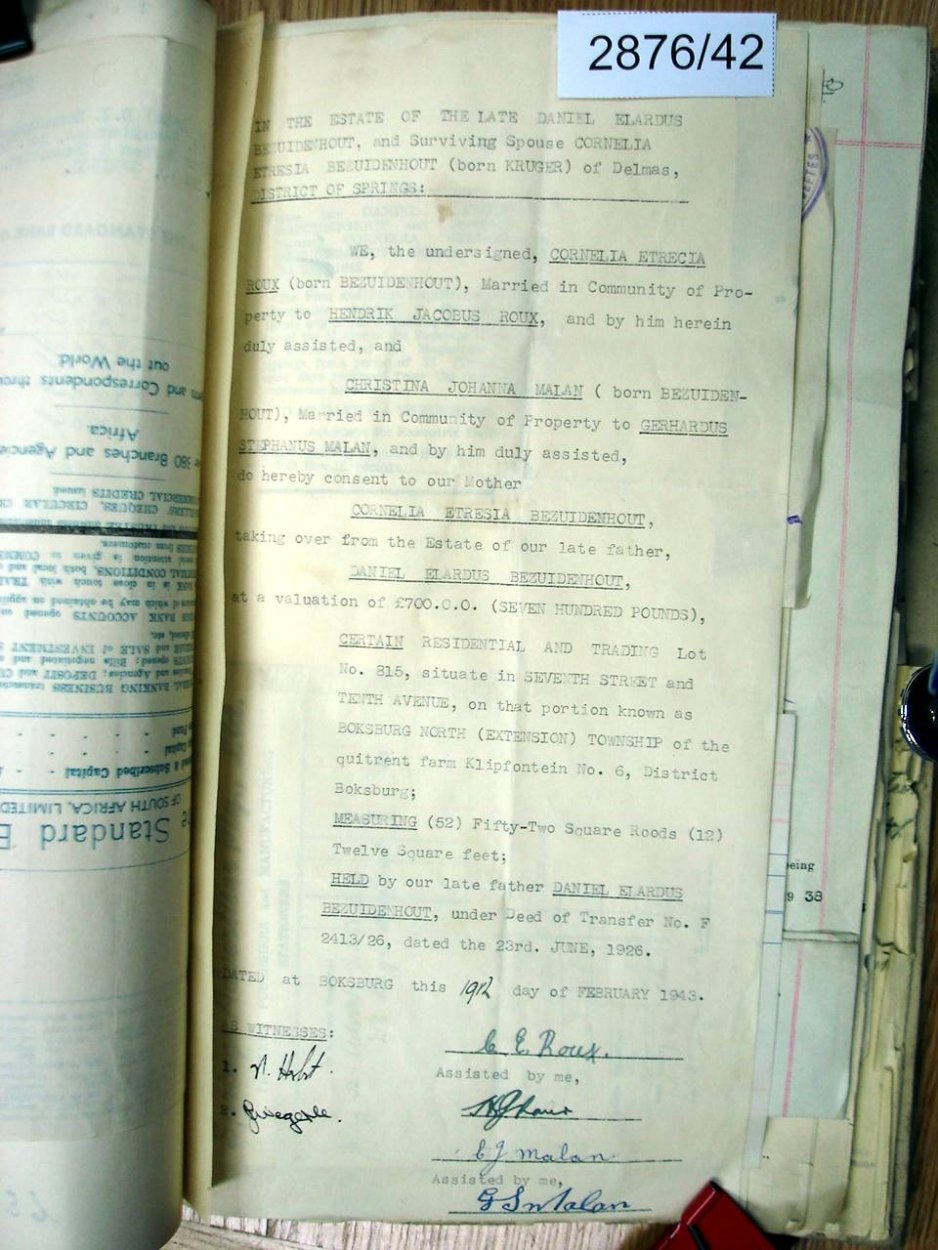 2876/42
IN THE ESTATE OF THE LATE DANIEL ELARDUS
BEZUIDENHOUT, and Surviving Spouse CORNELIA
ETRESIA BEZUIDENHOUT (born KRUGER) of Delmas,
DISTRICT OF SPRINGS:
WE, the undersigned, CORNELIA ETRECIA
ROUX (born BEZUIDENHOUT), Married in Community of Pro-
perty to HENDRIK JACOBUS ROUX, and by him herein
duly assisted, and
CHRISTINA JOHANNA MALAN ( born BEZUIDEN-
HOUT), Married in Community of Property to GERHARDUS
STEPHANUS MALAN, and by him duly assisted,
do hereby consent to our Mother
CORNELIA ETRESIA BEZUIDENHOUT,
taking over from the Estate of our late father,
DANIEL ELARDUS BEZUIDENHOUT,
at a valuation of £700.0.0. (SEVEN HUNDRED POUNDS),
CERTAIN RESIDENTIAL AND TRADING Lot
No. 815, situate in SEVENTH STREET and
TENTH AVENUE, on that portion known as
BOKSBURG NORTH (EXTENSION) TOWNSHIP of the
quitrent farm Klipfontein No. 6, District
Boksburg;
MEASURING (52) Fifty-Two Square Roods (12)
Twelve Square feet;
HELD by our late father DANIEL ELARDUS
BEZUIDENHOUT, under Deed of Transfer No. F
2413/26, dated the 23rd. JUNE, 1926.
DATED at BOKSBURG this day of FEBRUARY 1943.
AS WITNESSES:
C. E. Roux.
1.
Assisted by me,
2.
H J Roux
C J Malan
Assisted by me,
G S Malan
out the World.
and Correspondents
Africa.
380 Branches and
COMMERCIAL CREDITS issued.
CHEQUES, CIRCULAR
CONDITIONS, both local and
BANK ACCOUNTS
and SALE of INVESTMENT
and Agencies; DEPOSIT
BANKING BUSINESS
Subscribed Capital
OF SOUTH AFRICA, LIMITED
Standard
38